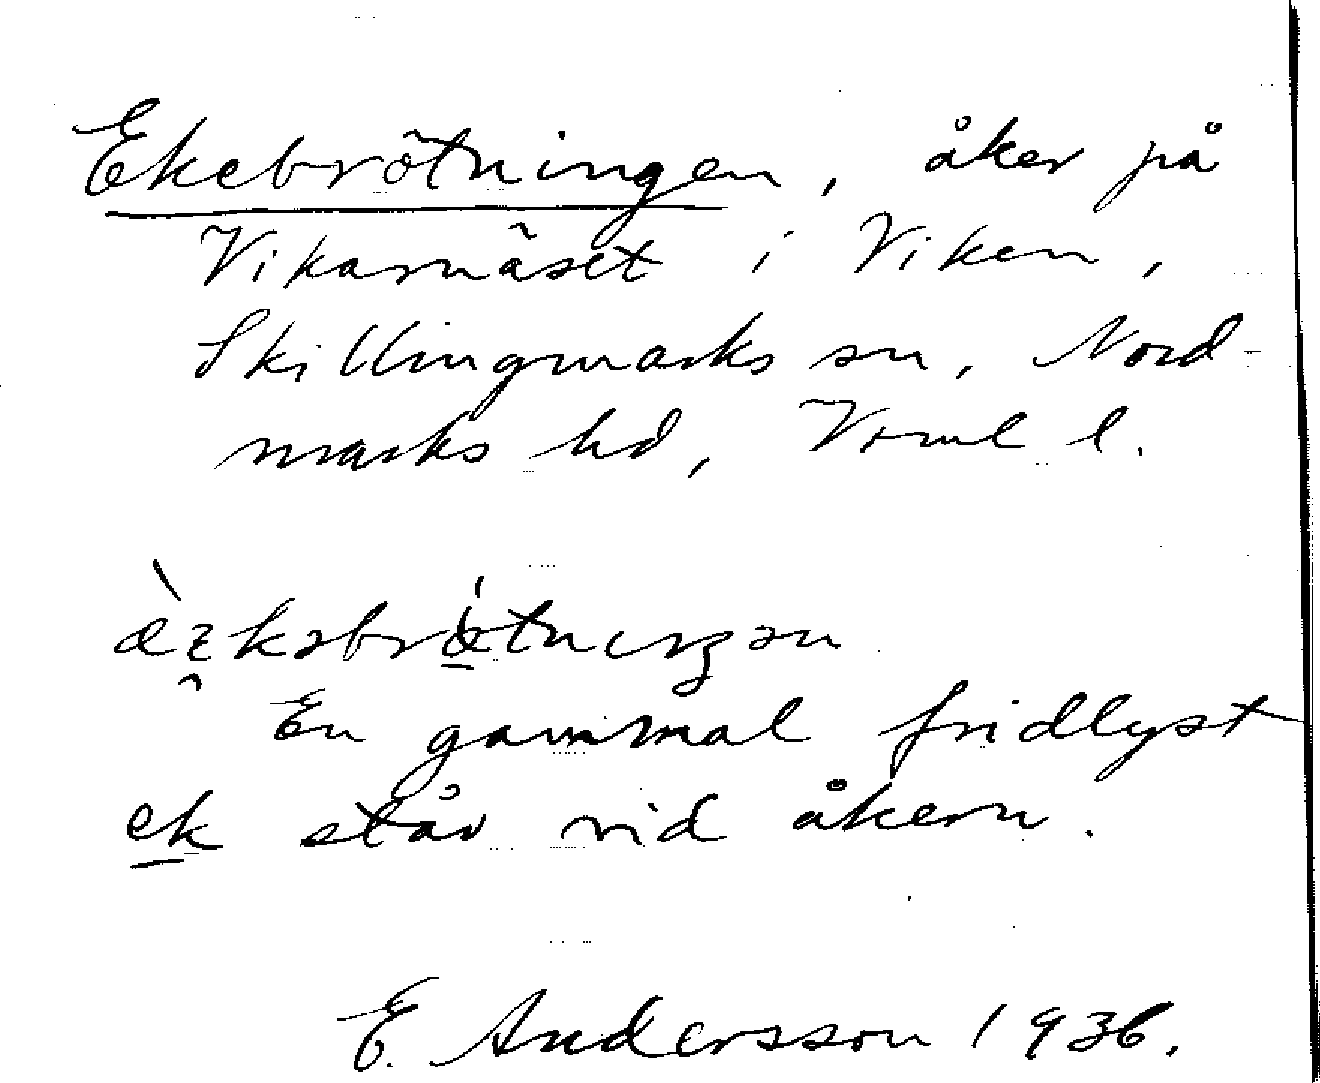 Ekebrötningen, åker på
Vikarnäset i Viken,
Skillingmarks sn, Nord-
marks hd, Vrml l.
En gammal fridlyst
ek står vid åkern.
E. Andersson 1936.